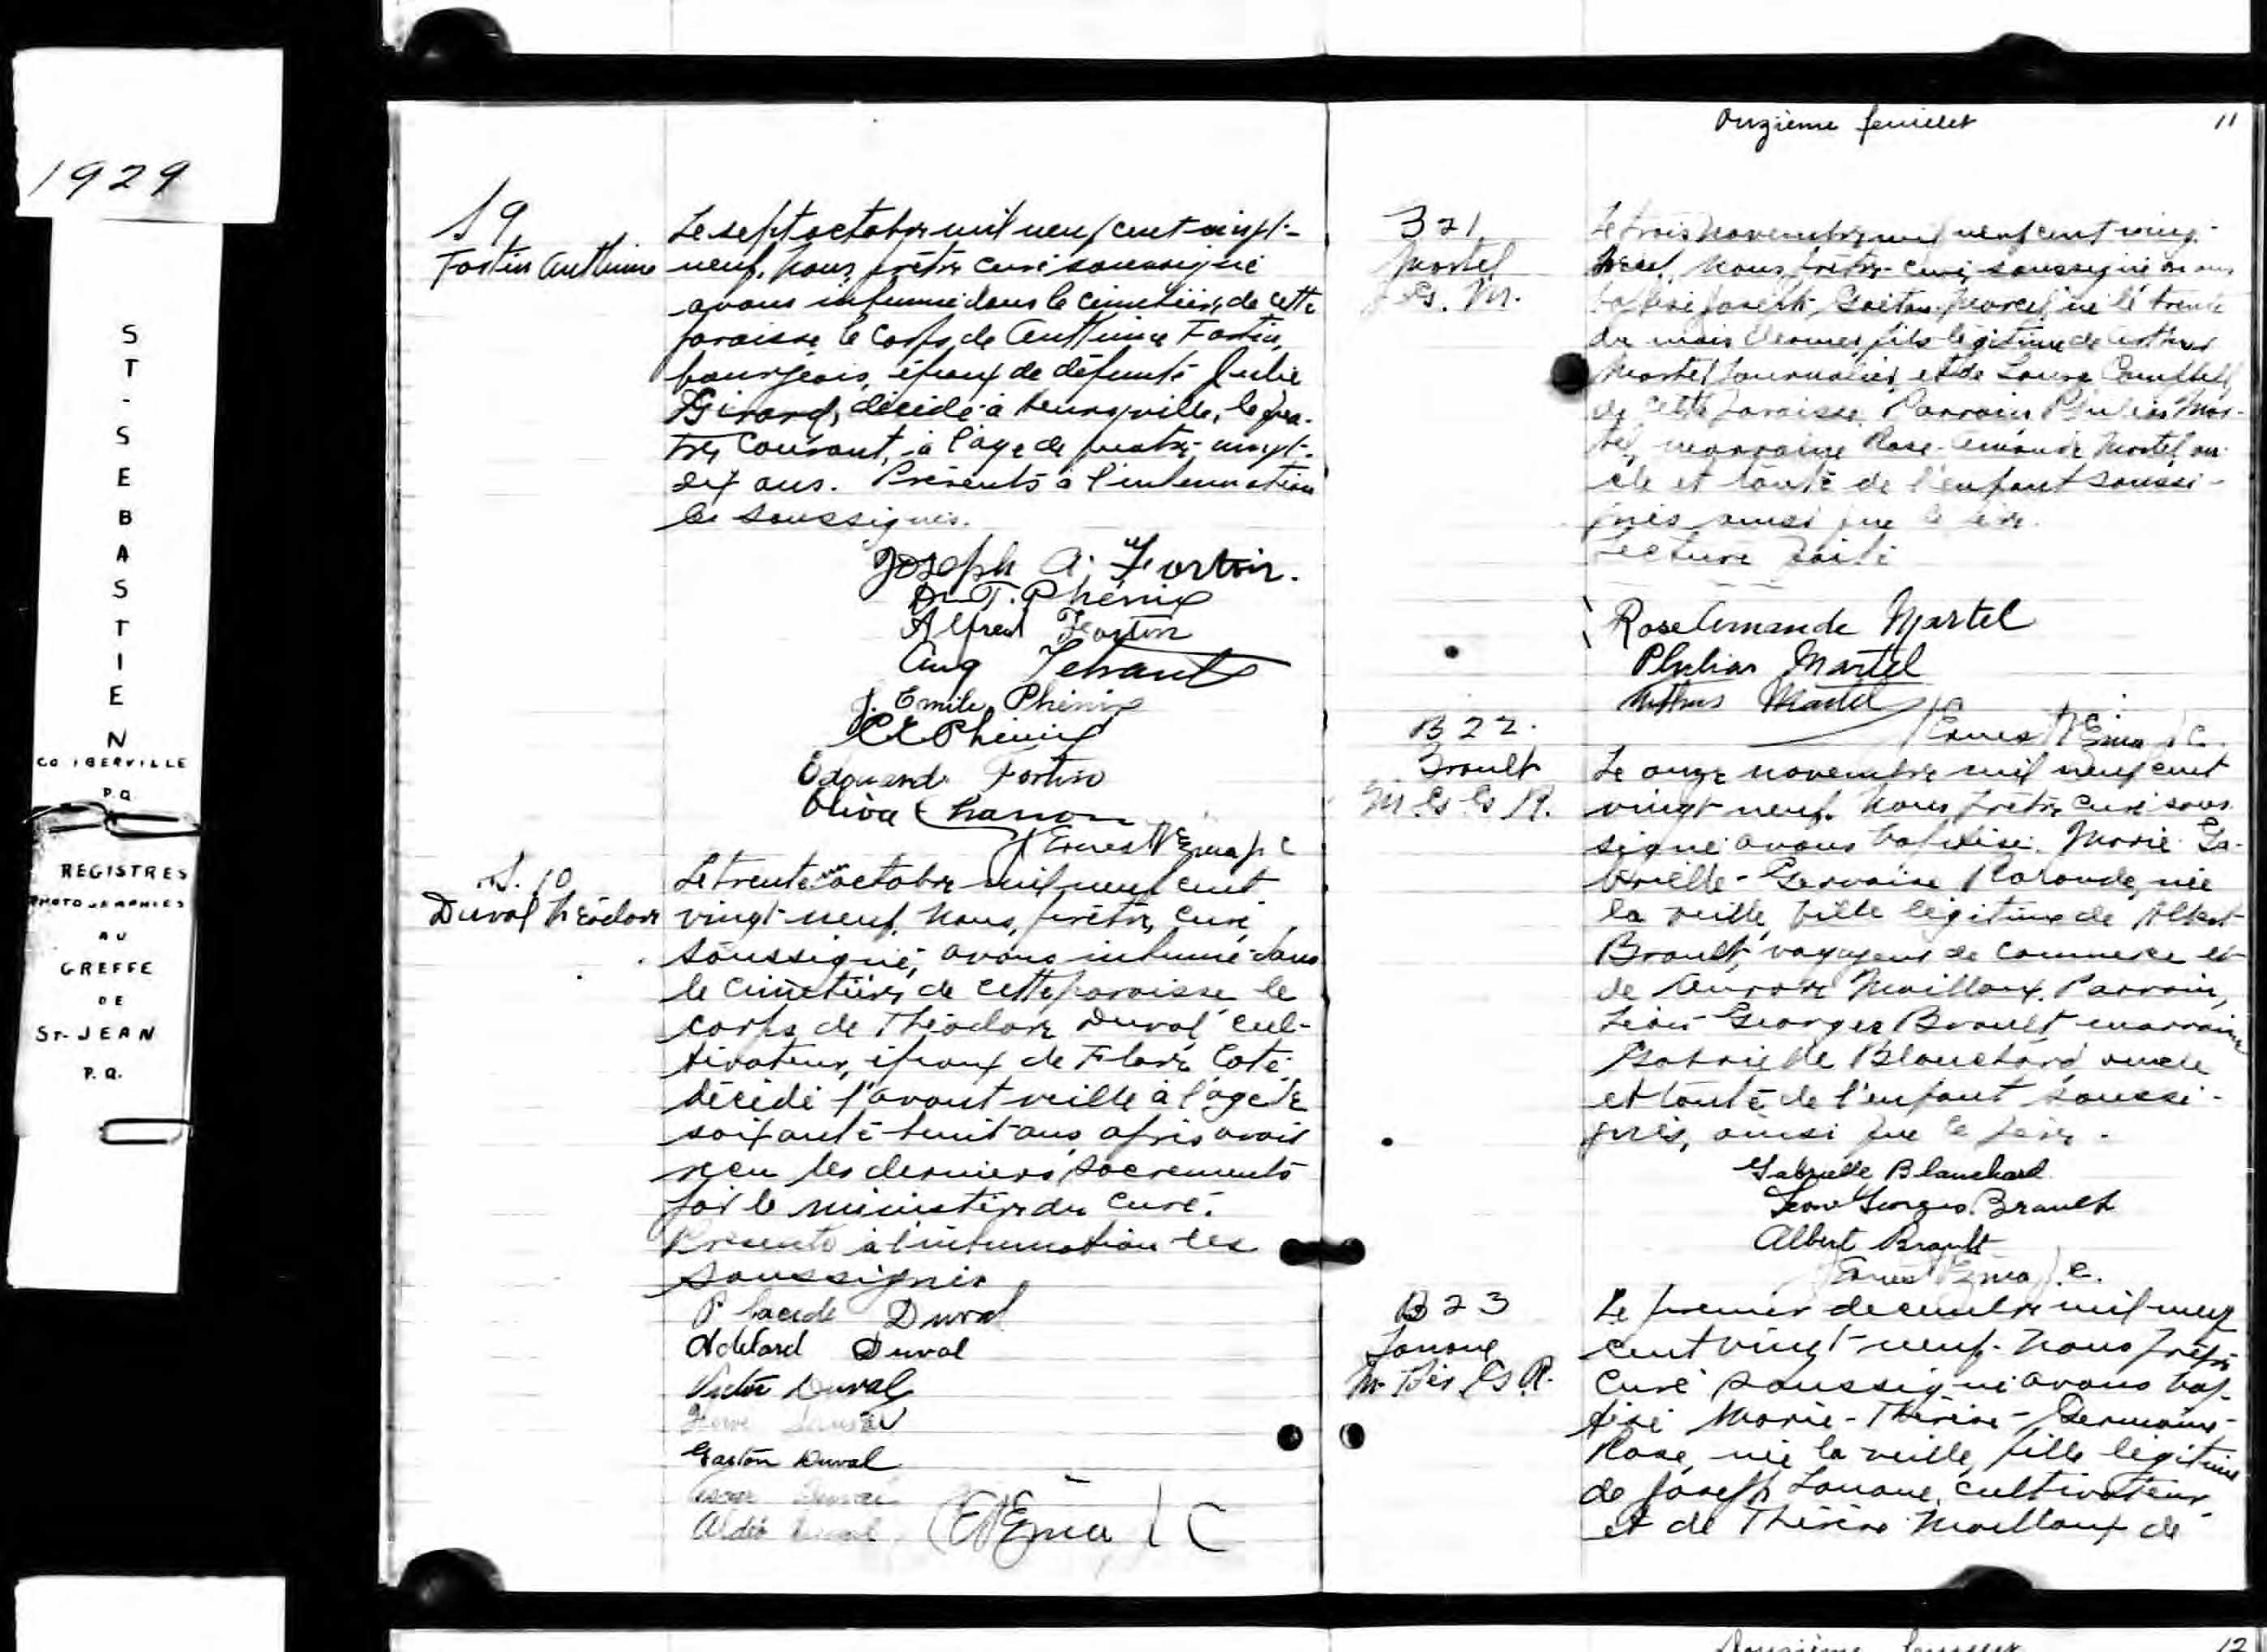 1929
ST-SEBASTIEN
CO IBERVILLE
P.Q
REGISTRES
PHOTOGRAPHIES
AU
GREFFE
DE
ST-JEAN
P.Q.
S 9
Fortin Anthime
Le sept octobre mil neuf cent vingt-
neuf, nous, prêtre curé soussigné
avons inhumé dans le cimetière de cette
paroisse le corps de Anthime Fortin,
bourgeois, époux de défunte Julie
Girard, décédé à Henryville, le qua-
tre courant, à l'âge de quatre-vingt-
dix ans. Présents à l'inhumation
les soussignés.
Joseph A. Fortin.
Dr T. Phénix
Alfred Fortin
Aug Tetrault
J. Emile Phénix
Phénix
Edouard Fortin
Oliva Charron
Ernest p c
S. 10
Duval Théodore
Le trente octobre mil neuf cent
vingt-neuf, nous, prêtre, curé,
soussigné, avons inhumé dans
le cimetière de cette paroisse le
corps de Théodore Duval cul-
tivateur, époux de Flore Coté,
décédé l'avant veille à l'âge de
soixante-huit ans, après avoir
reçu les derniers sacrements
par le ministère du curé.
Présents à l'inhumation les
soussignés
Placide Duval
Adélard Duval
Victor Duval
Gaston Duval
Duval
P C
Onzième feuillet 11
B 21.
Martel
J. G. M.
Le trois novembre mil neuf cent vingt-
neuf, nous, prêtre-curé, soussigné avons
baptisé Joseph Gaétan Marcel né le trente
du mois dernier, fils légitime de Arthur
Martel journalier et de Laura
de cette paroisse. Parrain Phelias Mar-
tel, marraine Rose-Amande Martel on-
cle et tante de l'enfant soussi-
gnés ainsi que le père.
Lecture faite
Rose Amande Martel
Phelias Martel
Arthur Martel
Ernest p c.
B 22.
Brault
M. G. G. R.
Le onze novembre mil neuf cent
vingt-neuf. Nous, prêtre curé sous-
signé avons baptisé Marie-Ga-
brielle-Gervaise née
la veille, fille légitime de Albert
Brault, voyageur de commerce et
de Aurore Mailloux. Parrain,
Léon-Georges Brault marraine
Gabrielle Blanchard, oncle
et tante de l'enfant soussi-
gnés, ainsi que le père.
Gabrielle Blanchard
Léon Georges Brault
Albert Brault
Ernest p.c.
B 23
Lanoue
M. Thér G. R.
Le premier décembre mil neuf
cent vingt-neuf. Nous prêtre
curé soussigné avons bap-
tisé Marie-Thérèse-Germaine-
Rose, née la veille, fille légitime
de Joseph Lanoue, cultivateur,
et de Thérèse Mailloux de
12